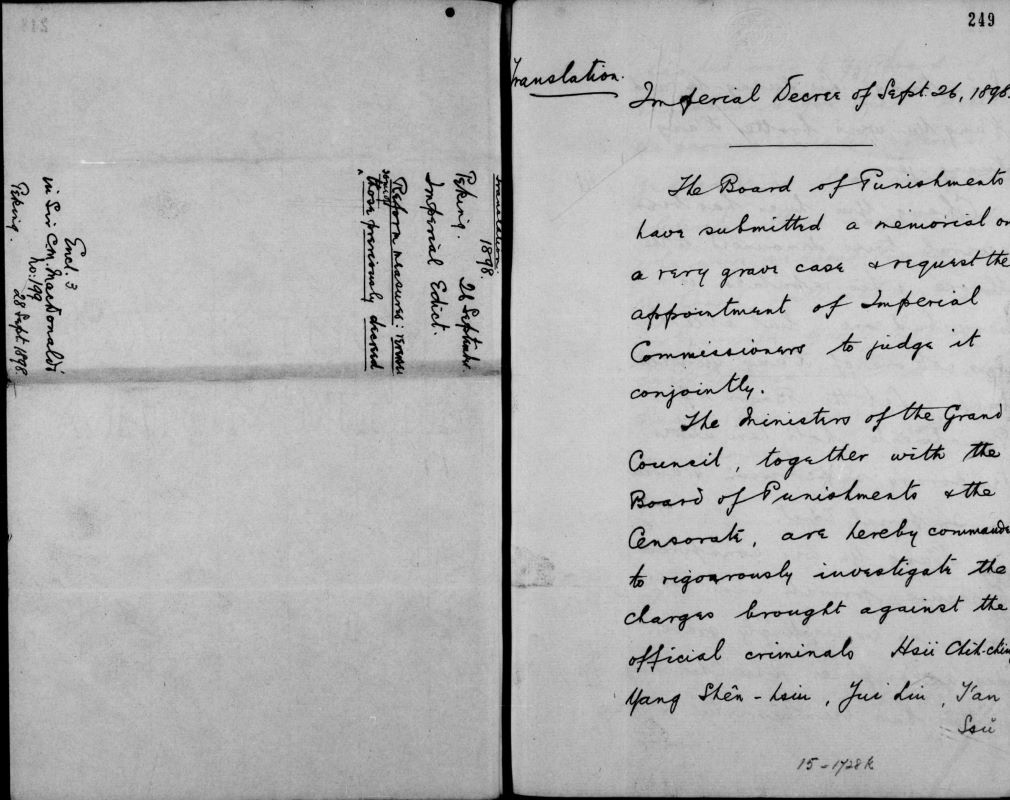 Translation.
Peking.
1898.
26 September.
Imperial Edict.
Reform measures:
some
those previously decreed
Encl. 3
in Sir C.M. MacDonald's
No: 199
28 Sept. 1898.
Peking.
249
Translation.
Imperial Decree of Sept. 26, 1898.
The Board of Punishments
have submitted a memorial on
a very grave case & request the
appointment of Imperial
Commissioners to judge it
conjointly.
The Ministers of the Grand
Council, together with the
Board of Punishments & the
Censorate, are hereby commande
to rigourously investigate the
charges brought against the
official criminals Hsü Chih-ching
Yang Shên-hsiu, Jui Lin, T'an
Ssŭ
15-1728k